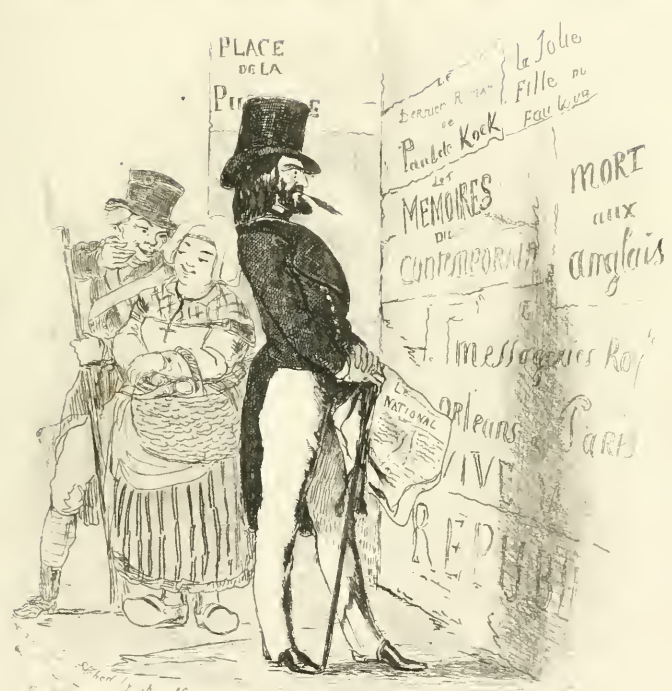 PLACE
DE LA
LE
DERNIER
DE
Paul de Kock
la Jolie
Fille DU
Faubourg
LES
MEMOIRES
DU
MORT
aux
anglais
messageries Roy
Orleans Paris
LE
NATIONAL
VIVE